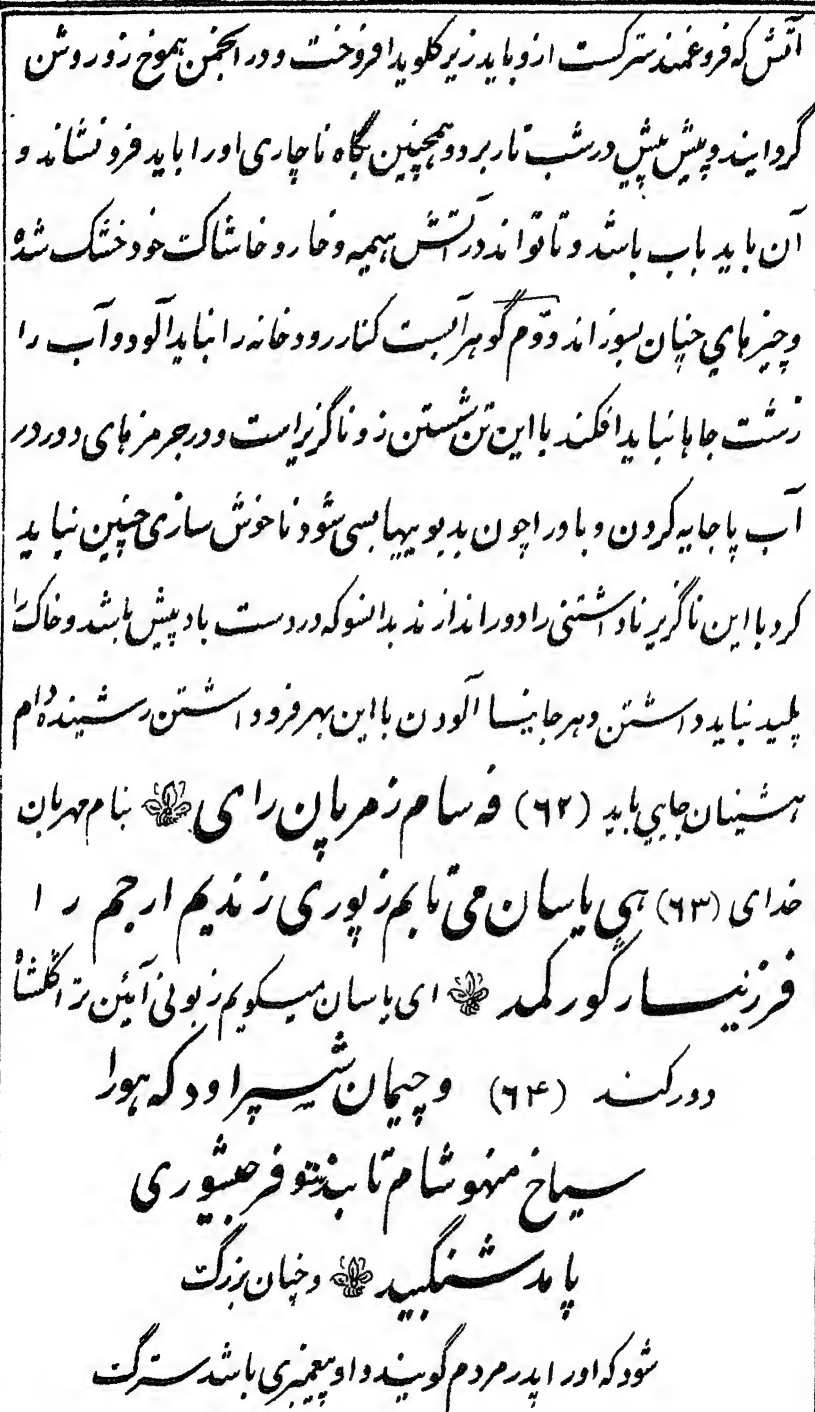 آتش که فروغمند سترکست ازو باید زیر کلوید افروخت و در انجمن هموخ زو روشن
گردایند و پیش پیش در شب تار برد و همچنین بگاه ناچاری اورا باید فرو نشاند و
آن باید باب باشد و تا تواند در آتش هیمه و خار و خاشاکت خود خشک شده
و چیزهای چنان بسوزاند و دوم گوهر آبست کنار رودخانه را نباید آلود و آب را
زشت جاها نباید افکند با این تن شستن زو ناگزیر است و در جرمزهای دور در
آب پا جایه کردن و باد را چون بد بویهابسی شود ناخوش سازی چنین نباید
کرد با این ناگریر ناداشتنی را دور اندازند بدانسو که در دست باد پیش باشد و خاک را
پلید نباید داشتن و هر جا نیسا آلودن با این بهر فرود اشتن رشینده دام
هشینان جایی باید (۶۲) فه سام زمرپان رای بنام مهربان
خدای (۶۳) هی یاسان می تابم زپوری زندیم ارجم را
فرزنیسار گور کمد ای یاسان میگویم زبونی آیین ترا گلشاه
دور کند (۶۴) و چیمان شیپر اود که هورا
سیماخ منهوشام تابند و فرجیشوری
پامد شنگبید و چنان بزرگت
شود که اورا پدر مردم گویند و او پیغمبری باشد سترگت